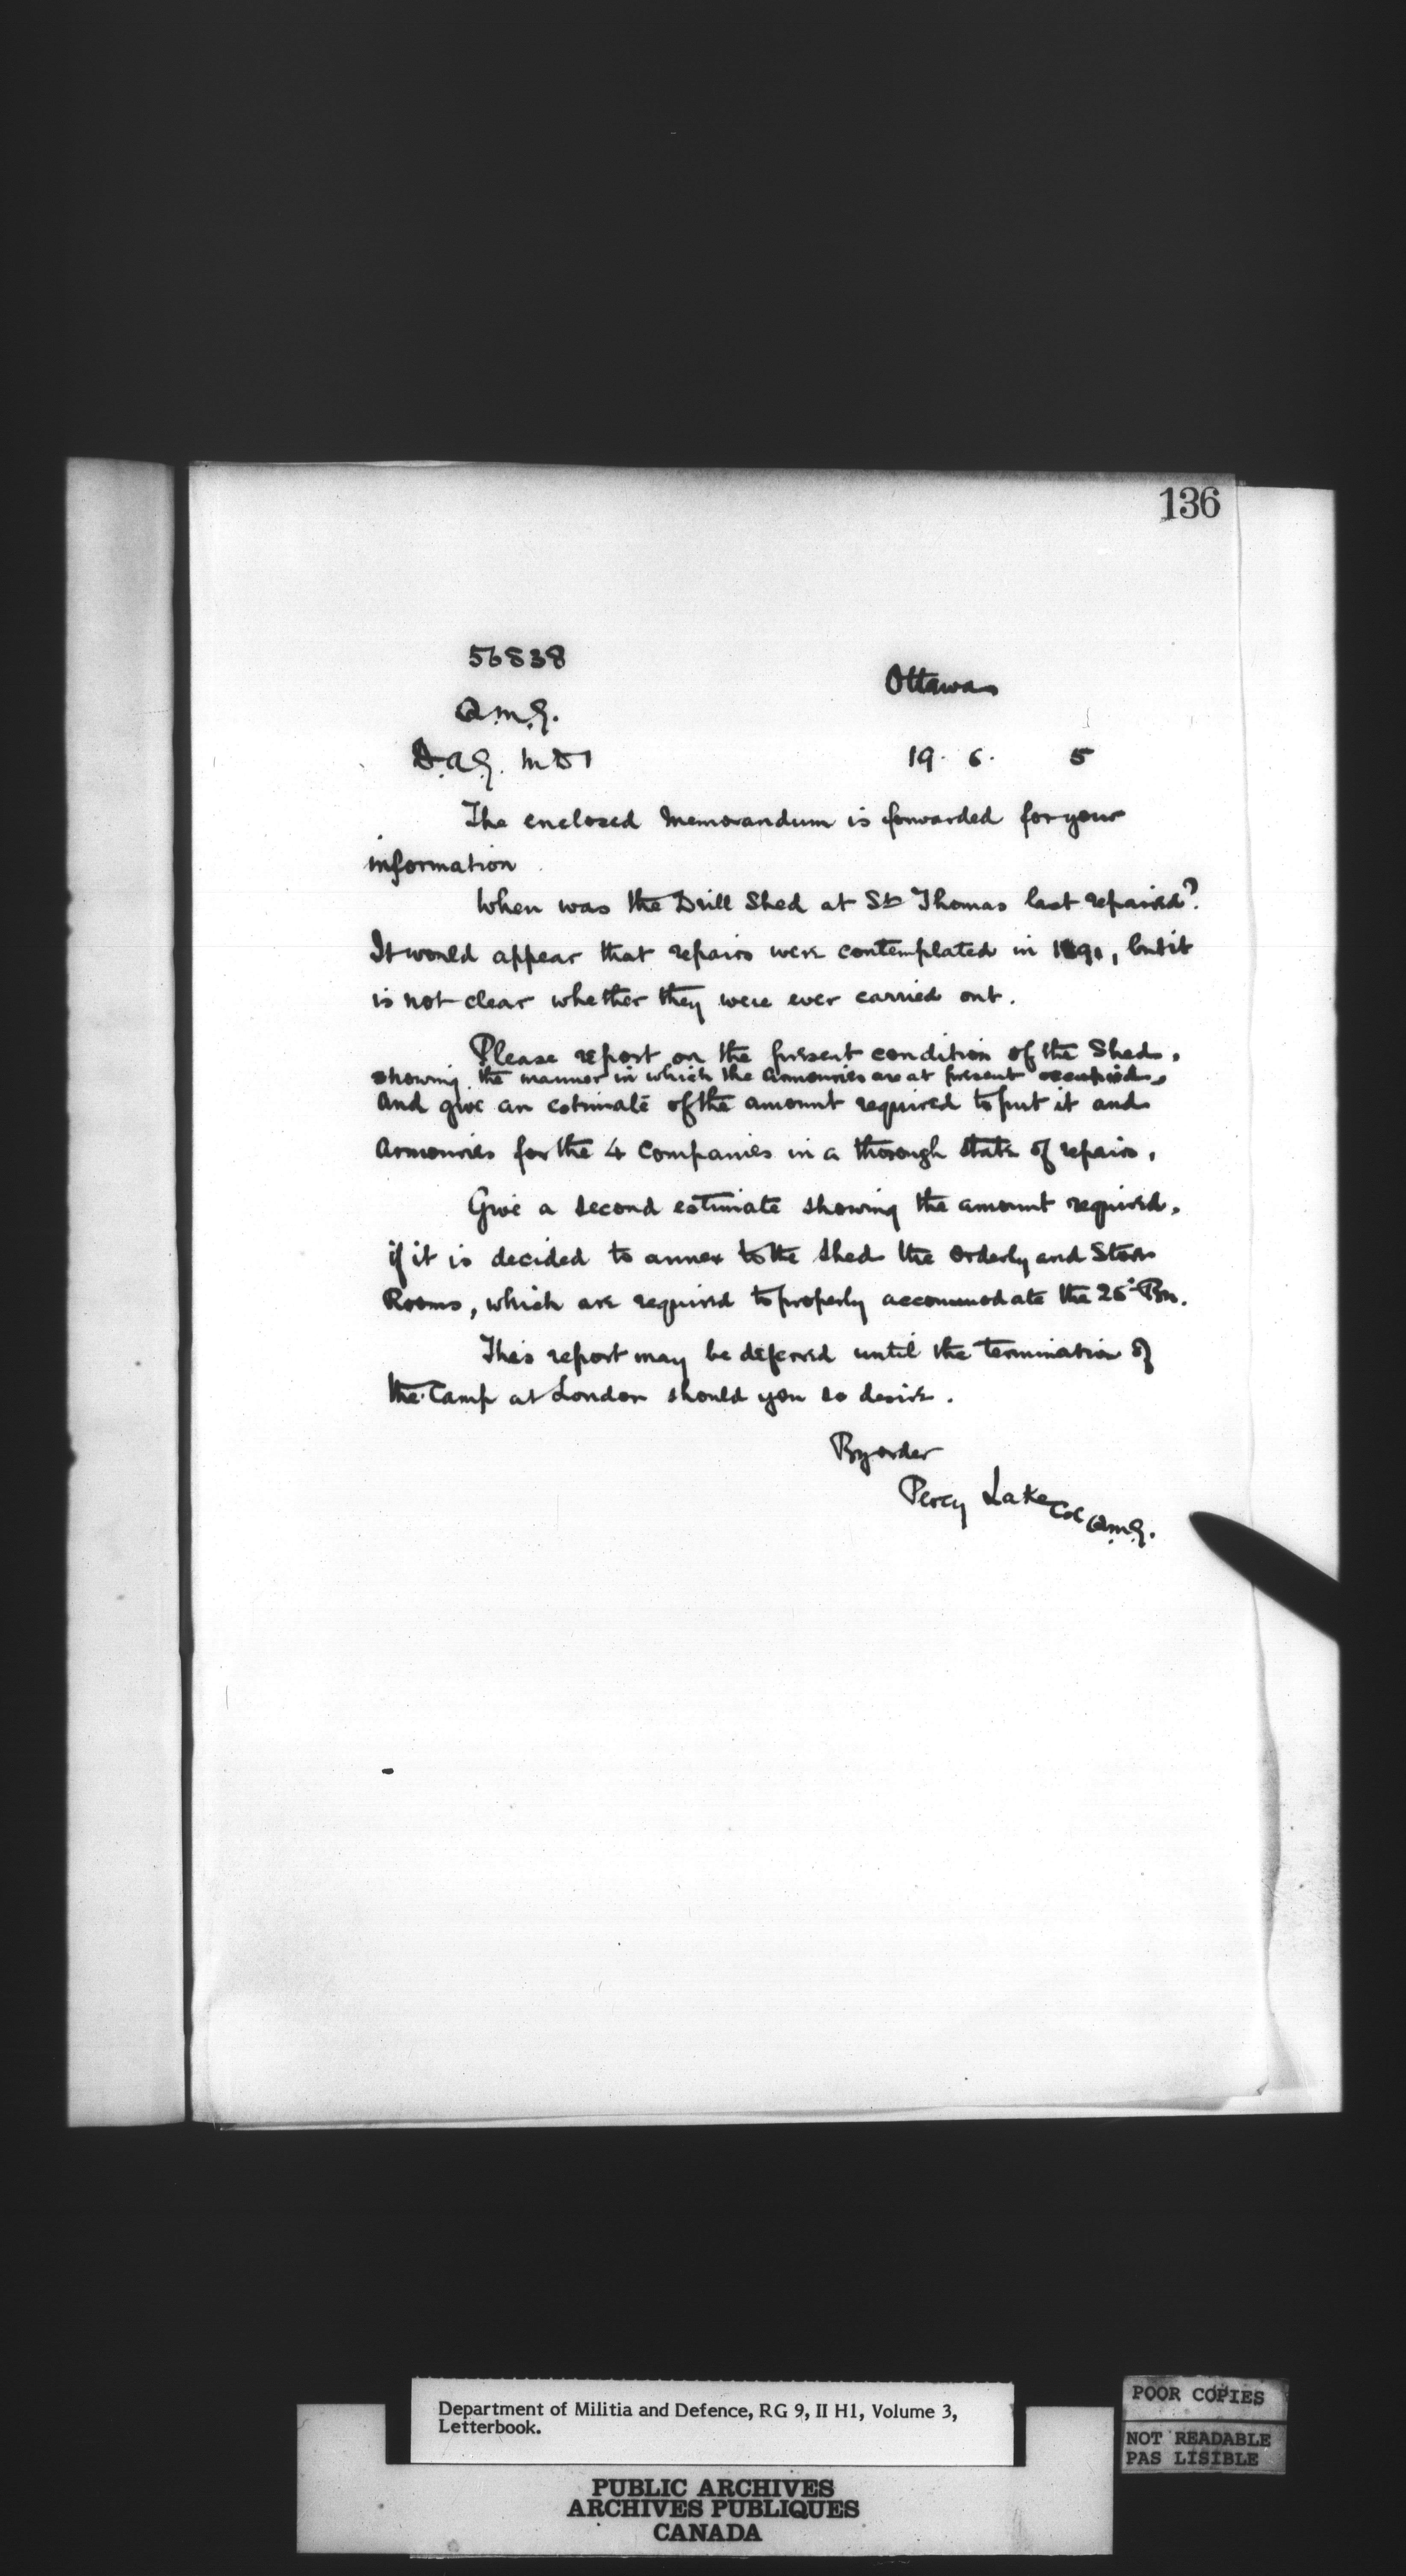 136
56838
Ottawa
Q.M.G.
D.A.G. M D 1
19. 6. 5
The enclosed Memorandum is forwarded for your
information
When was the Drill Shed at St Thomas last repaired?
It would appear that repairs were contemplated in 1891, but it
is not clear whether they were ever carried out.
Please report on the present condition of the Shed,
showing the manner in which the Armouries are at present occupied,
and give an estimate of the amount required to put it and
Armouries for the 4 Companies in a thorough state of repair.
Give a second estimate showing the amount required,
if it is decided to annex to the shed the Orderly and Store
Rooms, which are required to properly accommodate the 25th Bn.
This report may be deferred until the termination of
the Camp at London should you so desire.
By order
Percy Lake Col Q.M.G.
Department of Militia and Defence, RG 9, II H1, Volume 3,
Letterbook.
POOR COPIES
NOT READABLE
PAS LISIBLE
PUBLIC ARCHIVES
ARCHIVES PUBLIQUES
CANADA